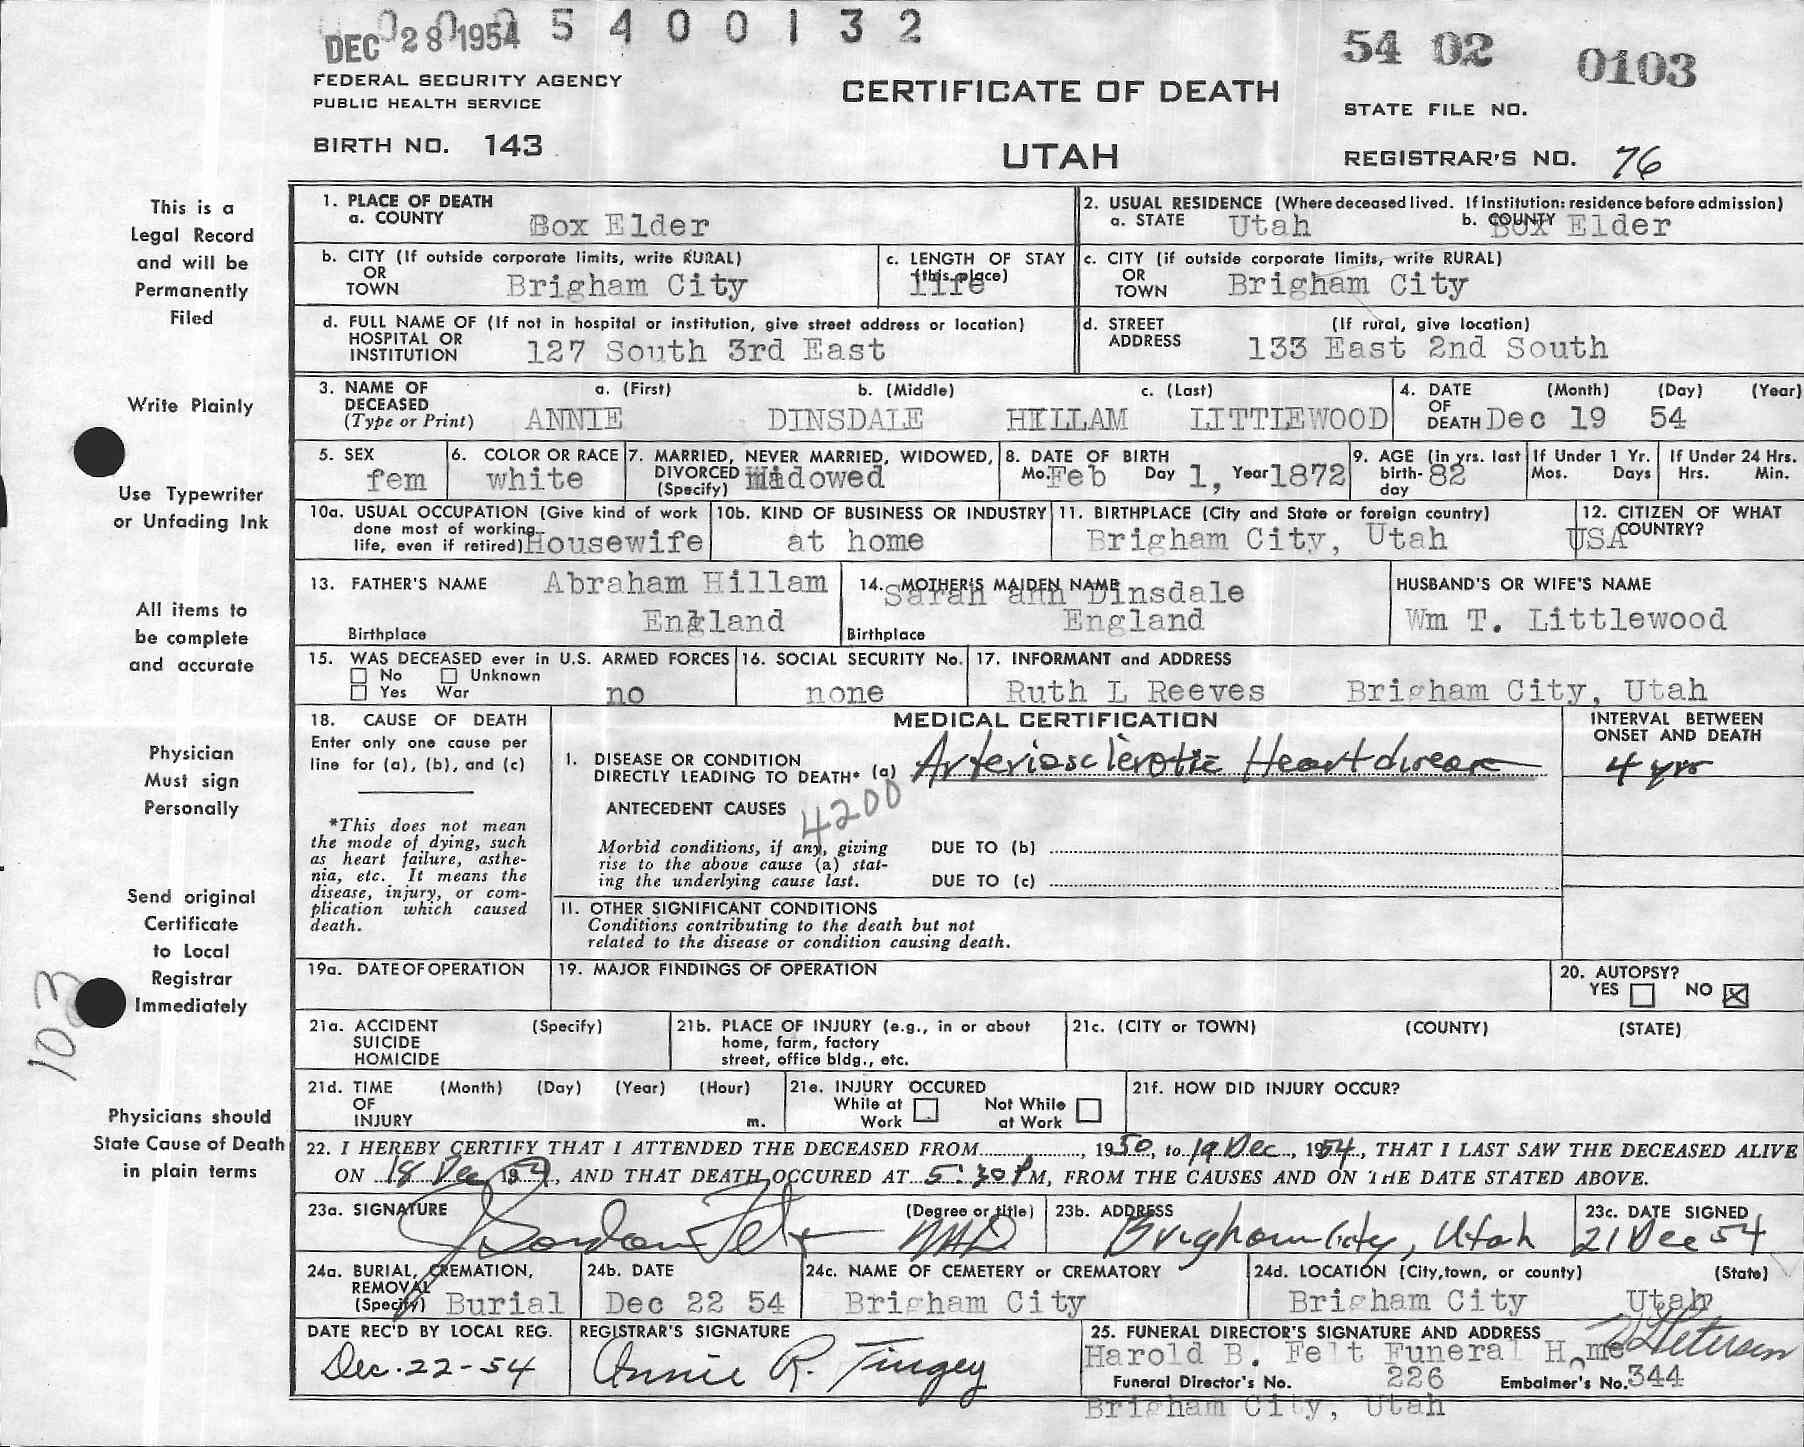 DEC 28 1954 5 4 0 0 1 3 2
54 02 0103
FEDERAL SECURITY AGENCY
PUBLIC HEALTH SERVICE
CERTIFICATE OF DEATH
STATE FILE NO.
BIRTH NO. 143
UTAH
REGISTRAR'S NO. 76
This is a
Legal Record
and will be
Permanently
Filed
Write Plainly
Use Typewriter
or Unfading Ink
All items to
be complete
and accurate
Physician
Must sign
Personally
Send original
Certificate
to Local
Registrar
Immediately
103
Physicians should
State Cause of Death
in plain terms
1. PLACE OF DEATH
a. COUNTY Box Elder
2. USUAL RESIDENCE (Where deceased lived. If Institution: residence before admission)
a. STATE Utah b. COUNTY Box Elder
b. CITY (If outside corporate limits, write RURAL)
OR
TOWN Brigham City
c. LENGTH OF STAY
(this place) life
c. CITY (if outside corporate limits, write RURAL)
OR
TOWN Brigham City
d. FULL NAME OF (If not in hospital or institution, give street address or location)
HOSPITAL OR
INSTITUTION 127 South 3rd East
d. STREET (If rural, give location)
ADDRESS 133 East 2nd South
3. NAME OF a. (First) b. (Middle) c. (Last)
DECEASED
(Type or Print) ANNIE DINSDALE HILLAM LITTLEWOOD
4. DATE (Month) (Day) (Year)
OF
DEATH Dec 19 54
5. SEX
fem
6. COLOR OR RACE
white
7. MARRIED, NEVER MARRIED, WIDOWED,
DIVORCED Widowed
(Specify)
8. DATE OF BIRTH
Mo. Feb Day 1, Year 1872
9. AGE (in yrs. last
birth- 82
day
If Under 1 Yr.
Mos. Days
If Under 24 Hrs.
Hrs. Min.
10a. USUAL OCCUPATION (Give kind of work
done most of working
life, even if retired) Housewife
10b. KIND OF BUSINESS OR INDUSTRY
at home
11. BIRTHPLACE (City and State or foreign country)
Brigham City, Utah
12. CITIZEN OF WHAT
COUNTRY? USA
13. FATHER'S NAME Abraham Hillam
Birthplace England
14. MOTHER'S MAIDEN NAME
Sarah ann Dinsdale
Birthplace England
HUSBAND'S OR WIFE'S NAME
Wm T. Littlewood
15. WAS DECEASED ever in U.S. ARMED FORCES
No Unknown
Yes War no
16. SOCIAL SECURITY No.
none
17. INFORMANT and ADDRESS
Ruth L Reeves Brigham City, Utah
18. CAUSE OF DEATH
Enter only one cause per
line for (a), (b), and (c)
*This does not mean
the mode of dying, such
as heart failure, asthe-
nia, etc. It means the
disease, injury, or com-
plication which caused
death.
MEDICAL CERTIFICATION
INTERVAL BETWEEN
ONSET AND DEATH
I. DISEASE OR CONDITION
DIRECTLY LEADING TO DEATH* (a) Arteriosclerotic Heart disease 4 yrs
ANTECEDENT CAUSES 4200
Morbid conditions, if any, giving
rise to the above cause (a) stat-
ing the underlying cause last.
DUE TO (b)
DUE TO (c)
II. OTHER SIGNIFICANT CONDITIONS
Conditions contributing to the death but not
related to the disease or condition causing death.
19a. DATE OF OPERATION
19. MAJOR FINDINGS OF OPERATION
20. AUTOPSY?
YES NO X
21a. ACCIDENT (Specify)
SUICIDE
HOMICIDE
21b. PLACE OF INJURY (e.g., in or about
home, farm, factory
street, office bldg., etc.
21c. (CITY or TOWN) (COUNTY) (STATE)
21d. TIME (Month) (Day) (Year) (Hour)
OF
INJURY m.
21e. INJURY OCCURED
While at Work
Not While at Work
21f. HOW DID INJURY OCCUR?
22. I HEREBY CERTIFY THAT I ATTENDED THE DECEASED FROM, 1950, to 19 Dec, 1954, THAT I LAST SAW THE DECEASED ALIVE
ON 18 Dec 1954, AND THAT DEATH OCCURED AT 5:30 PM, FROM THE CAUSES AND ON THE DATE STATED ABOVE.
23a. SIGNATURE (Degree or title)
MD
23b. ADDRESS
Brigham City, Utah
23c. DATE SIGNED
21 Dec 54
24a. BURIAL, CREMATION,
REMOVAL
(Specify) Burial
24b. DATE
Dec 22 54
24c. NAME OF CEMETERY or CREMATORY
Brigham City
24d. LOCATION (City, town, or county) (State)
Brigham City Utah
DATE REC'D BY LOCAL REG.
Dec. 22-54
REGISTRAR'S SIGNATURE
Annie R. Tingey
25. FUNERAL DIRECTOR'S SIGNATURE AND ADDRESS
Harold B. Felt Funeral Home
Funeral Director's No. 226 Embalmer's No. 344
Brigham City, Utah